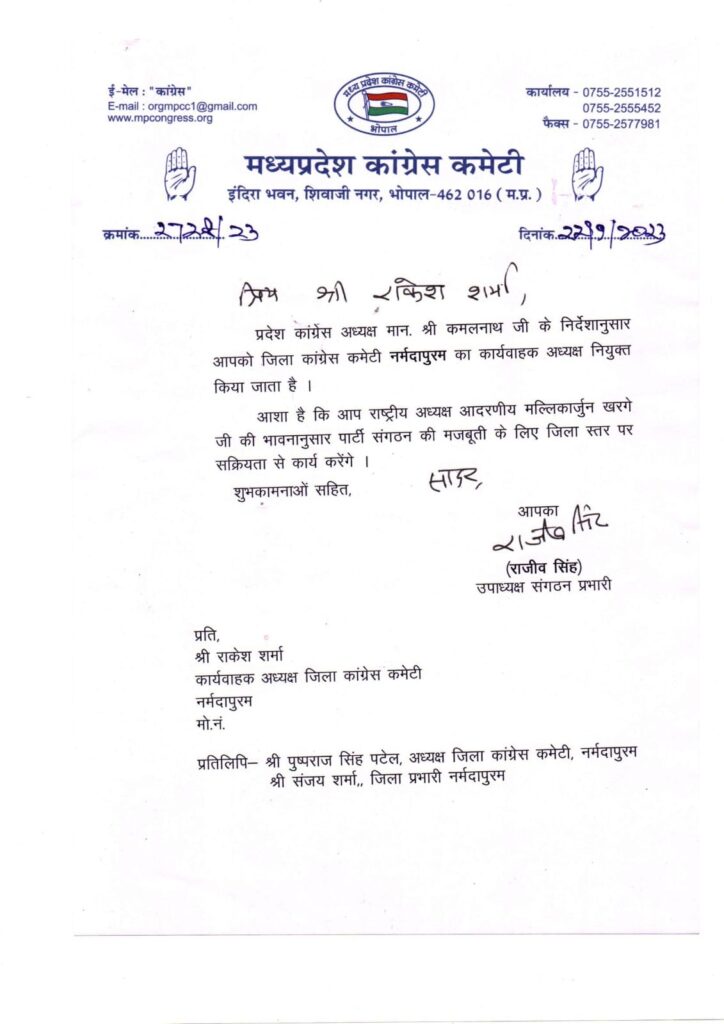 ई-मेल : "कांग्रेस"
E-mail : orgmpcc1@gmail.com
www.mpcongress.org
मध्य प्रदेश कांग्रेस कमेटी
भोपाल
कार्यालय - 0755-2551512
0755-2555452
फैक्स - 0755-2577981
मध्यप्रदेश कांग्रेस कमेटी
इंदिरा भवन, शिवाजी नगर, भोपाल-462 016 ( म.प्र. )
क्रमांक
दिनांक 22/9/2023
प्रिय श्री राकेश शर्मा,
प्रदेश कांग्रेस अध्यक्ष मान. श्री कमलनाथ जी के निर्देशानुसार
आपको जिला कांग्रेस कमेटी नर्मदापुरम का कार्यवाहक अध्यक्ष नियुक्त
किया जाता है ।
आशा है कि आप राष्ट्रीय अध्यक्ष आदरणीय मल्लिकार्जुन खरगे
जी की भावनानुसार पार्टी संगठन की मजबूती के लिए जिला स्तर पर
सक्रियता से कार्य करेंगे ।
शुभकामनाओं सहित,
सादर,
आपका
(राजीव सिंह)
उपाध्यक्ष संगठन प्रभारी
प्रति,
श्री राकेश शर्मा
कार्यवाहक अध्यक्ष जिला कांग्रेस कमेटी
नर्मदापुरम
मो.नं.
प्रतिलिपि– श्री पुष्पराज सिंह पटेल, अध्यक्ष जिला कांग्रेस कमेटी, नर्मदापुरम
श्री संजय शर्मा,, जिला प्रभारी नर्मदापुरम